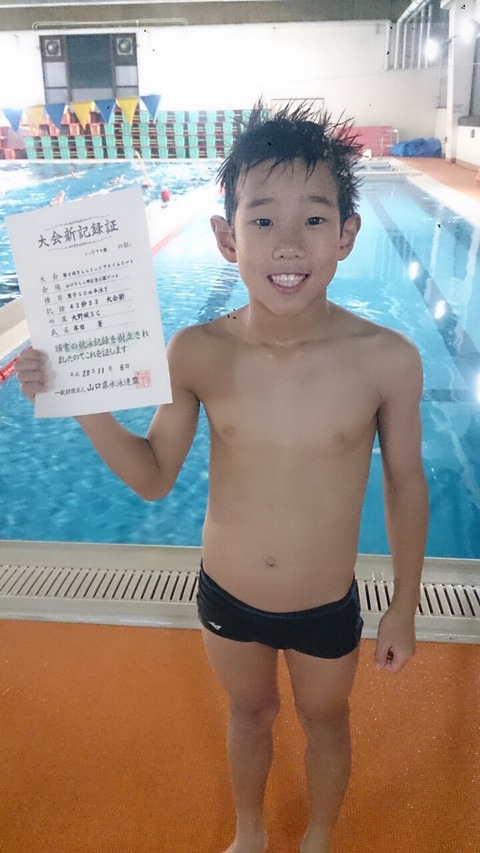 大会新記録証
大会
会場
種目 男子50m平泳ぎ
記録 42秒33 大会新
所属 大野城SC
氏名
頭書の競泳記録を樹立され
ましたのでこれを証します
平成 28年 11月 6日
一般財団法人 山口県水泳連盟